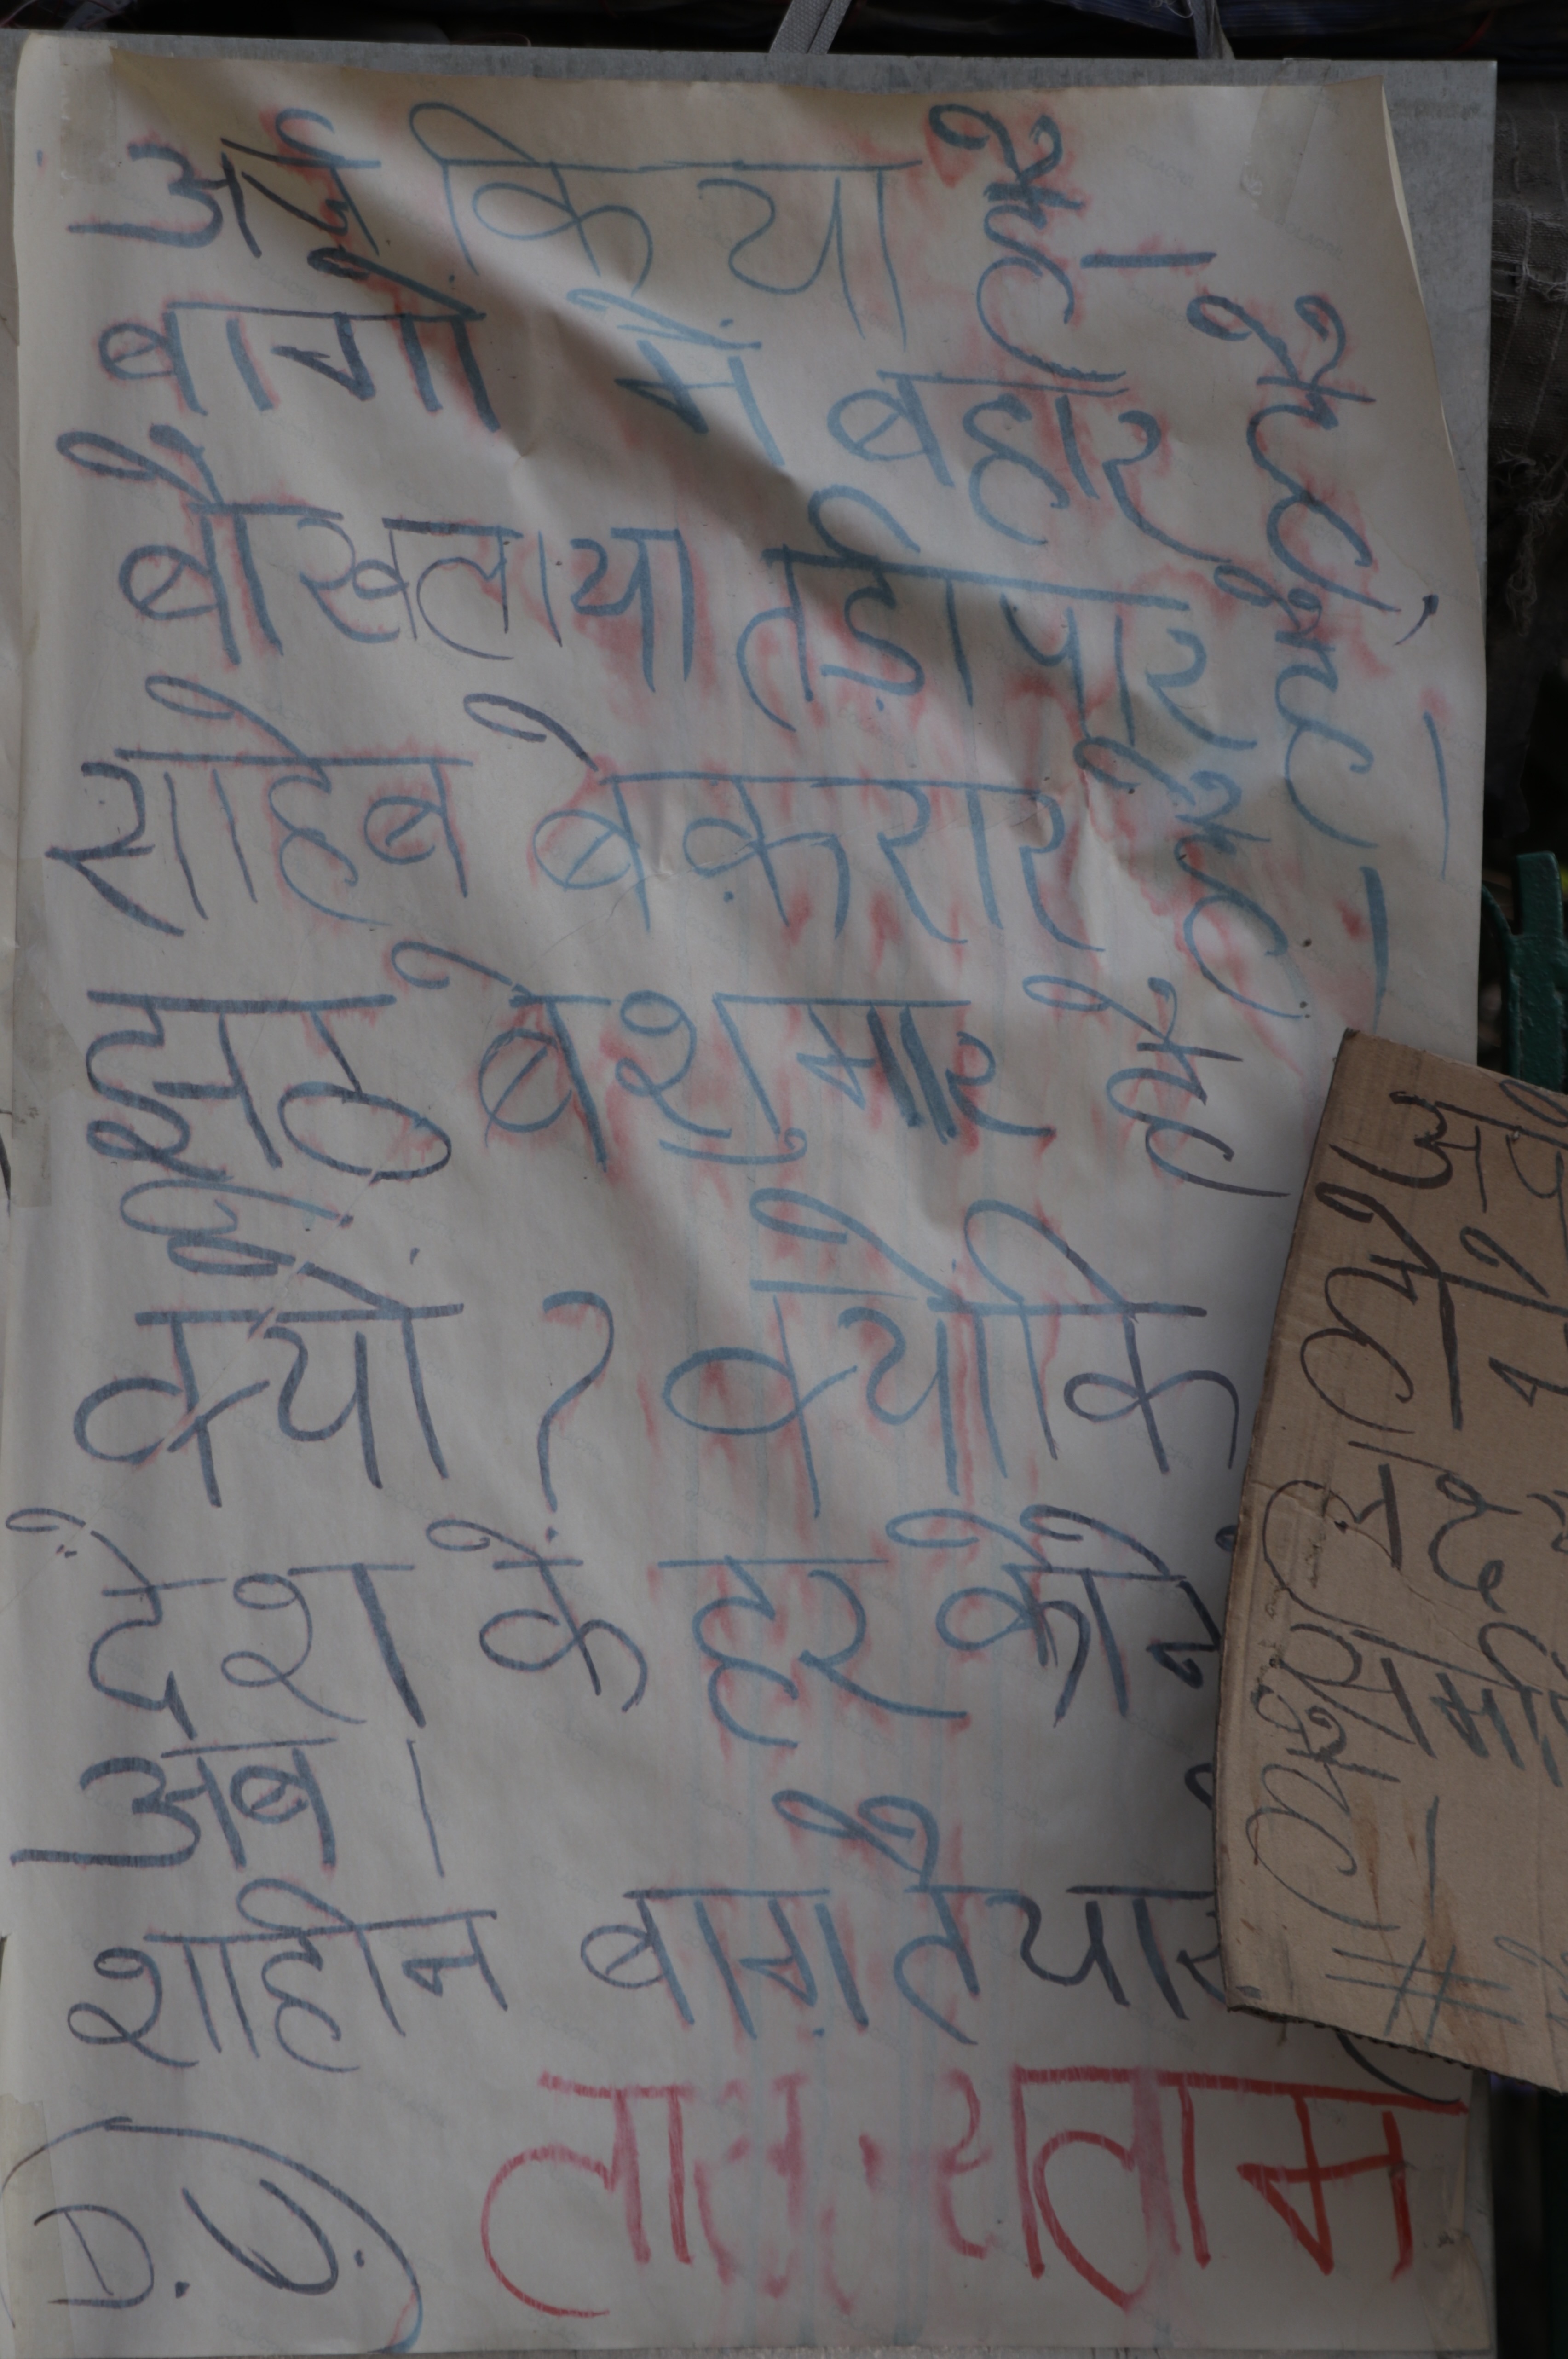 अर्ज़ किया है।
बागों में बहार है,
बौखलाया तड़ीपार है।
साहेब बेक़रार है।
झूठ बेशुमार है
क्यों? क्योंकि
देश के हर कोने
अब।
शाहीन बाग़ तैयार
लाल सलाम
D.U.